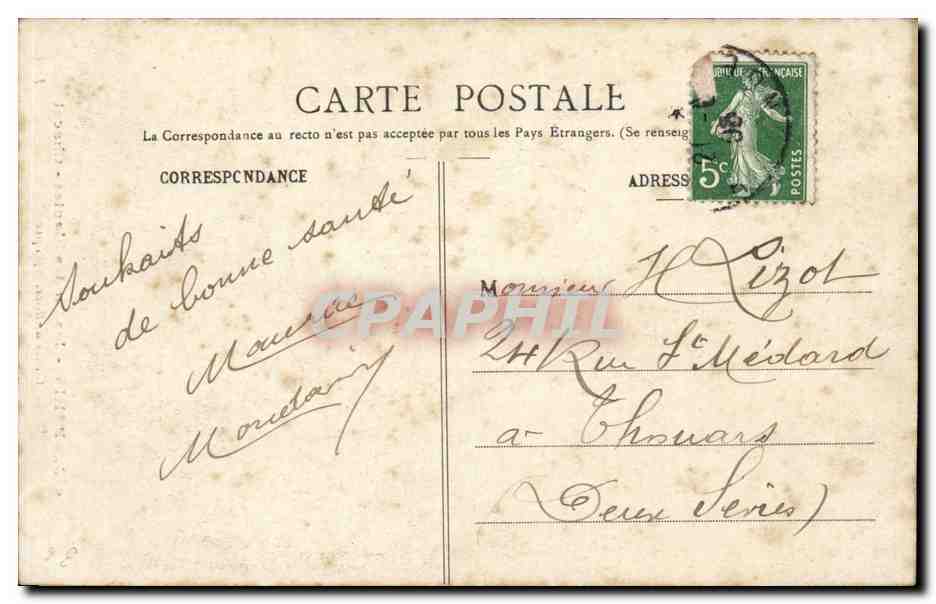 CARTE POSTALE
La Correspondance au recto n'est pas acceptée par tous les Pays Étrangers. (Se renseig
CORRESPCNDANCE
ADRESS
UBLIQUE FRANÇAISE
5c
POSTES
08
Souhaits
de bonne santé
Maurice
CPAPHIL
Monsieur H Lizot
24 Rue St Médard
a Thouars
(Deux Sévres)